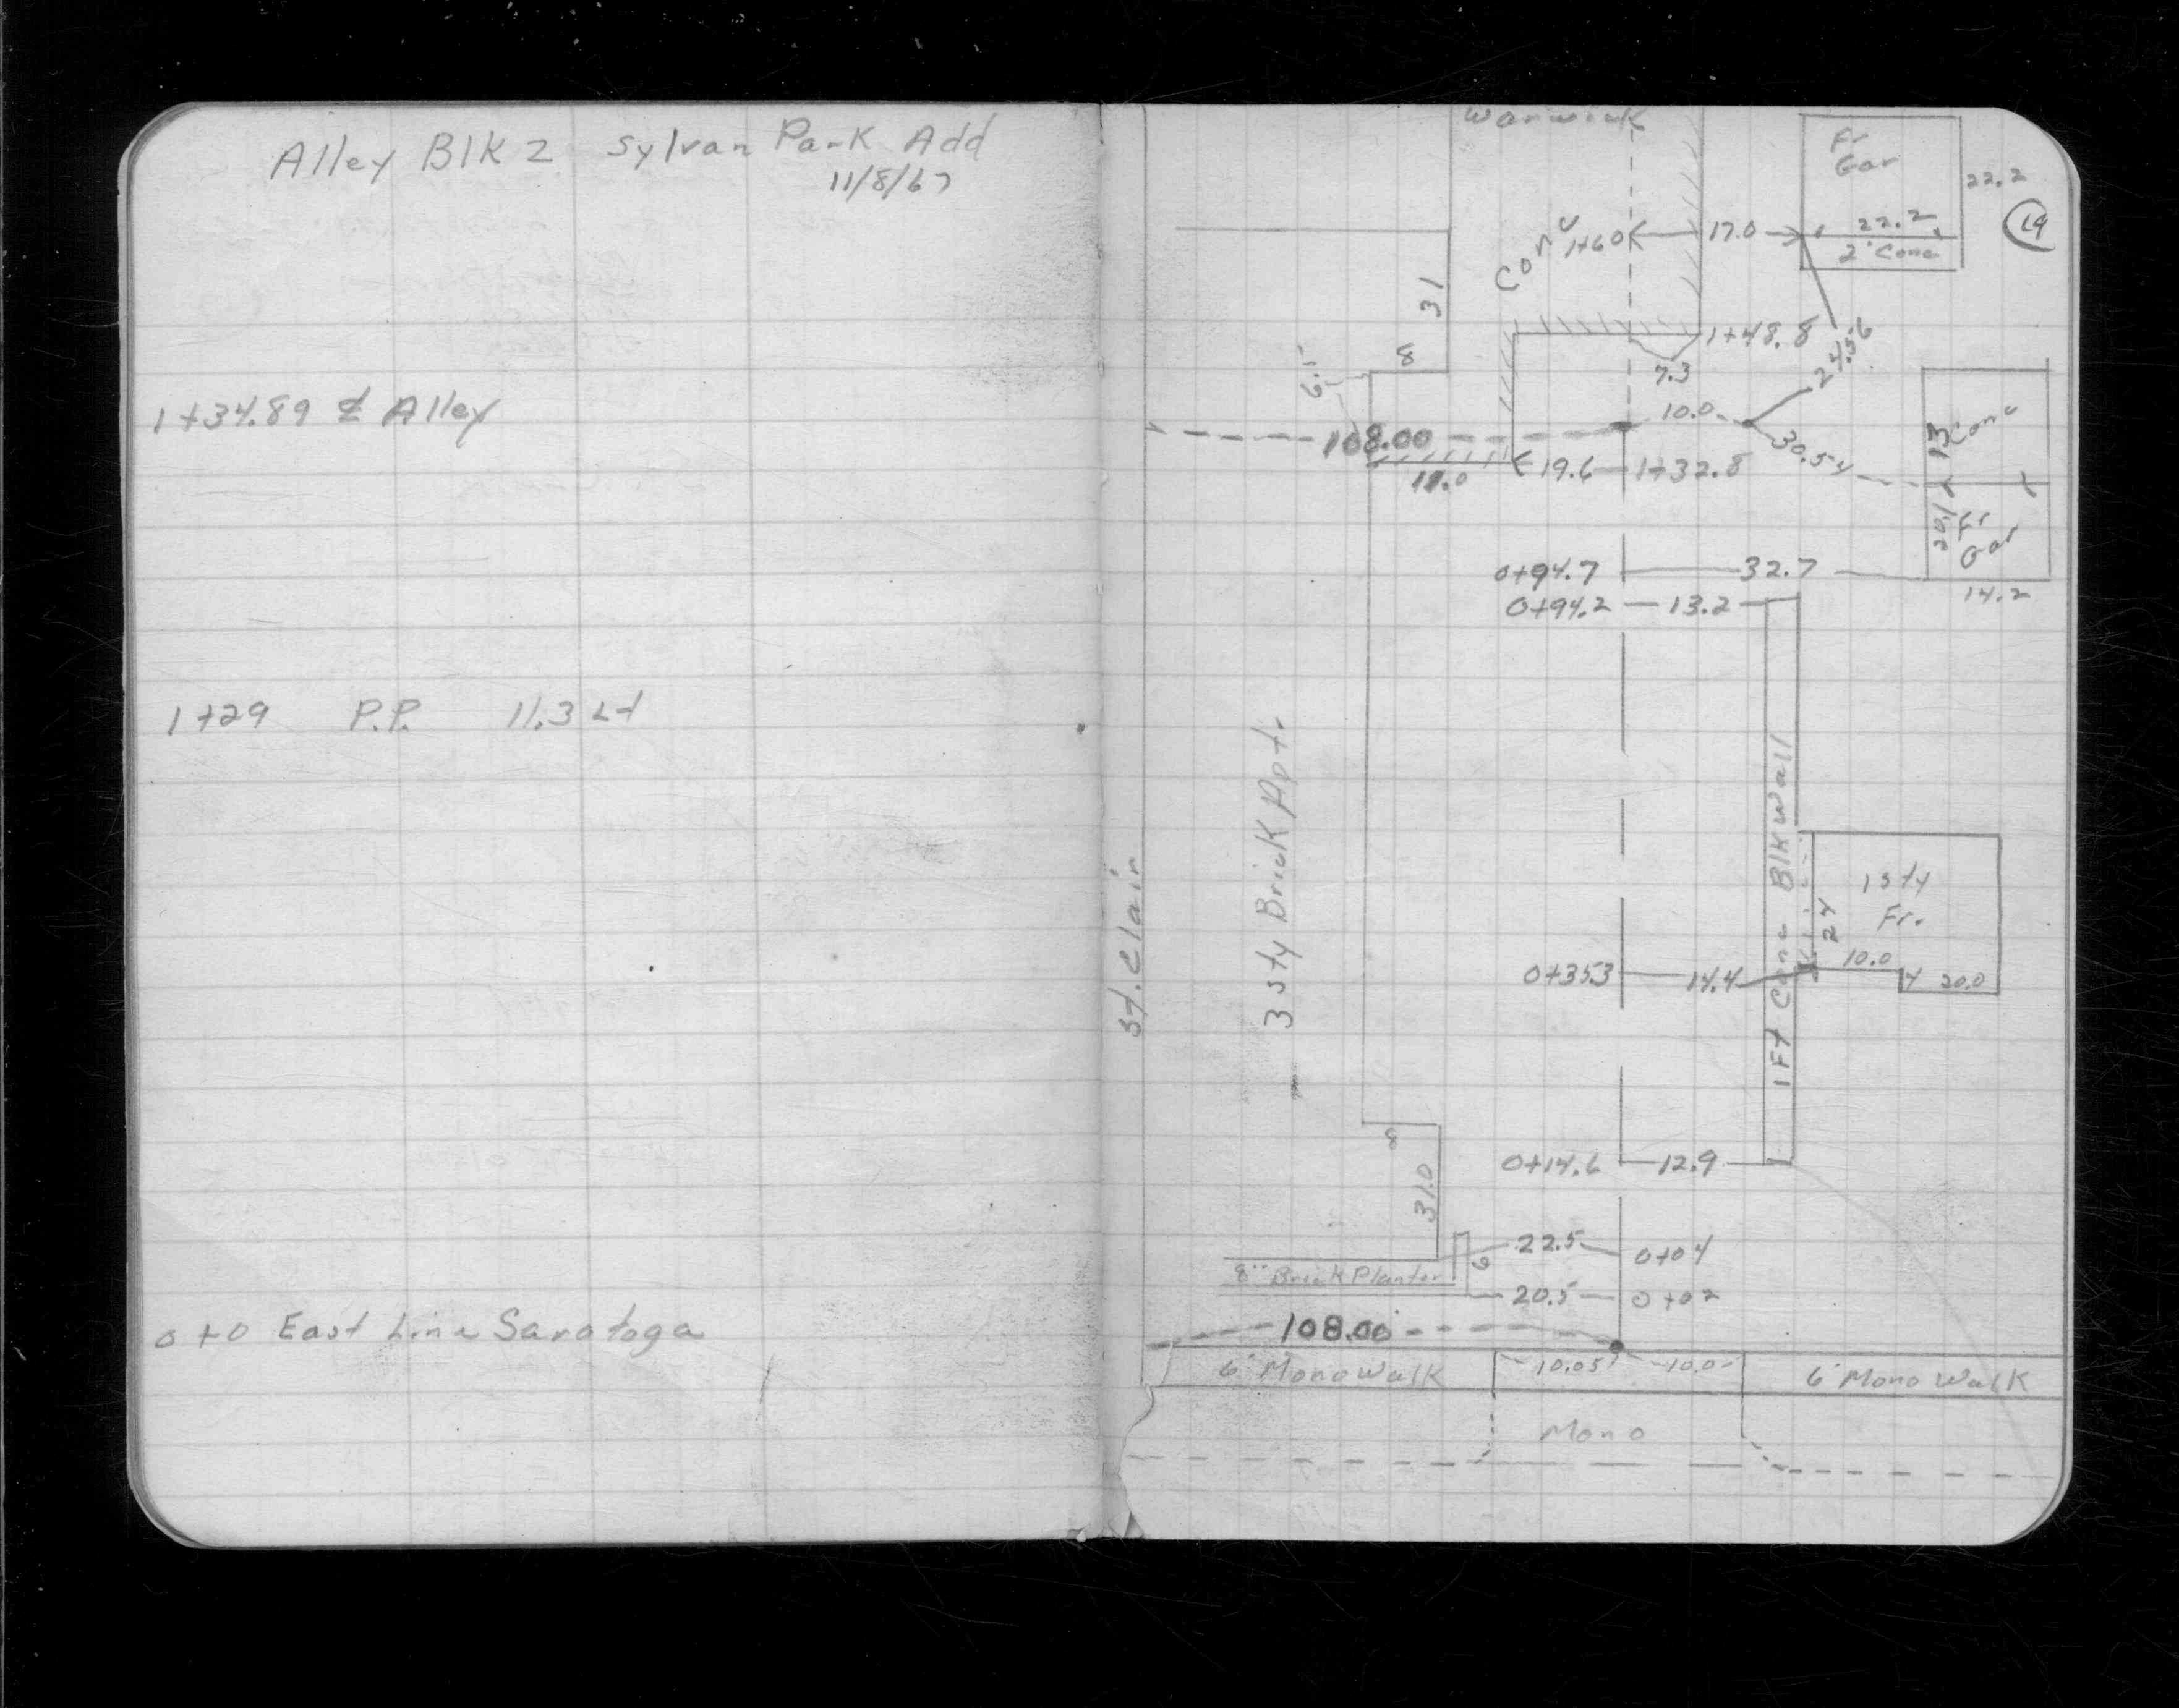 Alley Blk 2 Sylvan Park Add
11/8/67
1+34.89 ℄ Alley
1+29 P.P. 11.3 Lt
0+0 East Line Saratoga
Warwick
Fr
Gar
22.2
19
Conc
1+60
17.0
22.2
2' Conc
31
8
1+48.8
7.3
24.56
6.5'
10.0
108.00
11.0
19.6
1+32.8
30.54
13
Conc
20.1
Fr
Gar
0+94.7
32.7
0+94.2
13.2
14.2
St. Clair
3 sty Brick Apt.
1 Ft Conc Blk Wall
1 sty
Fr.
24
10.0
0+35.3
14.4
4
20.0
8
31.0
0+14.6
12.9
22.5
0+04
8" Brick Planter
6
20.5
0+02
108.00
6' Mono Walk
10.05'
10.0
6' Mono Walk
Mono